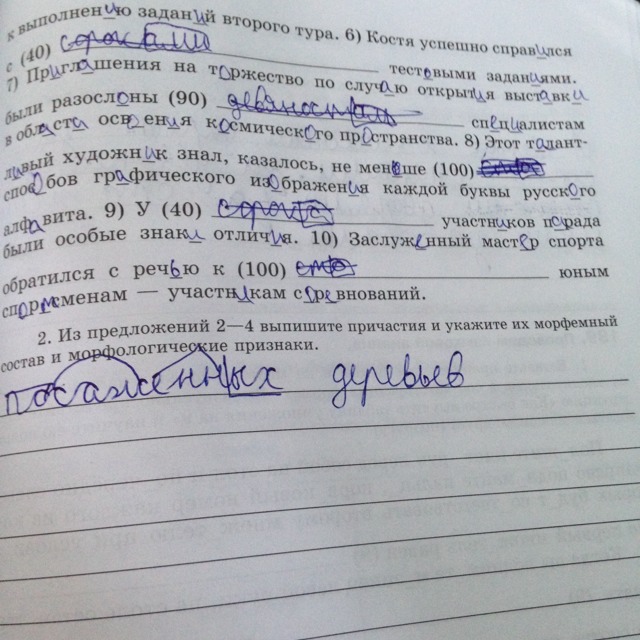 к выполнению заданий второго тура. 6) Костя успешно справился
с (40) тестовыми заданиями.
7) Приглашения на торжество по случаю открытия выставки
были разосланы (90) специалистам
в области освоения космического пространства. 8) Этот талант-
ливый художник знал, казалось, не меньше (100)
способов графического изображения каждой буквы русского
алфавита. 9) У (40) участников парада
были особые знаки отличия. 10) Заслуженный мастер спорта
обратился с речью к (100) юным
спортсменам — участникам соревнований.
2. Из предложений 2—4 выпишите причастия и укажите их морфемный
состав и морфологические признаки.
посаженных деревьев